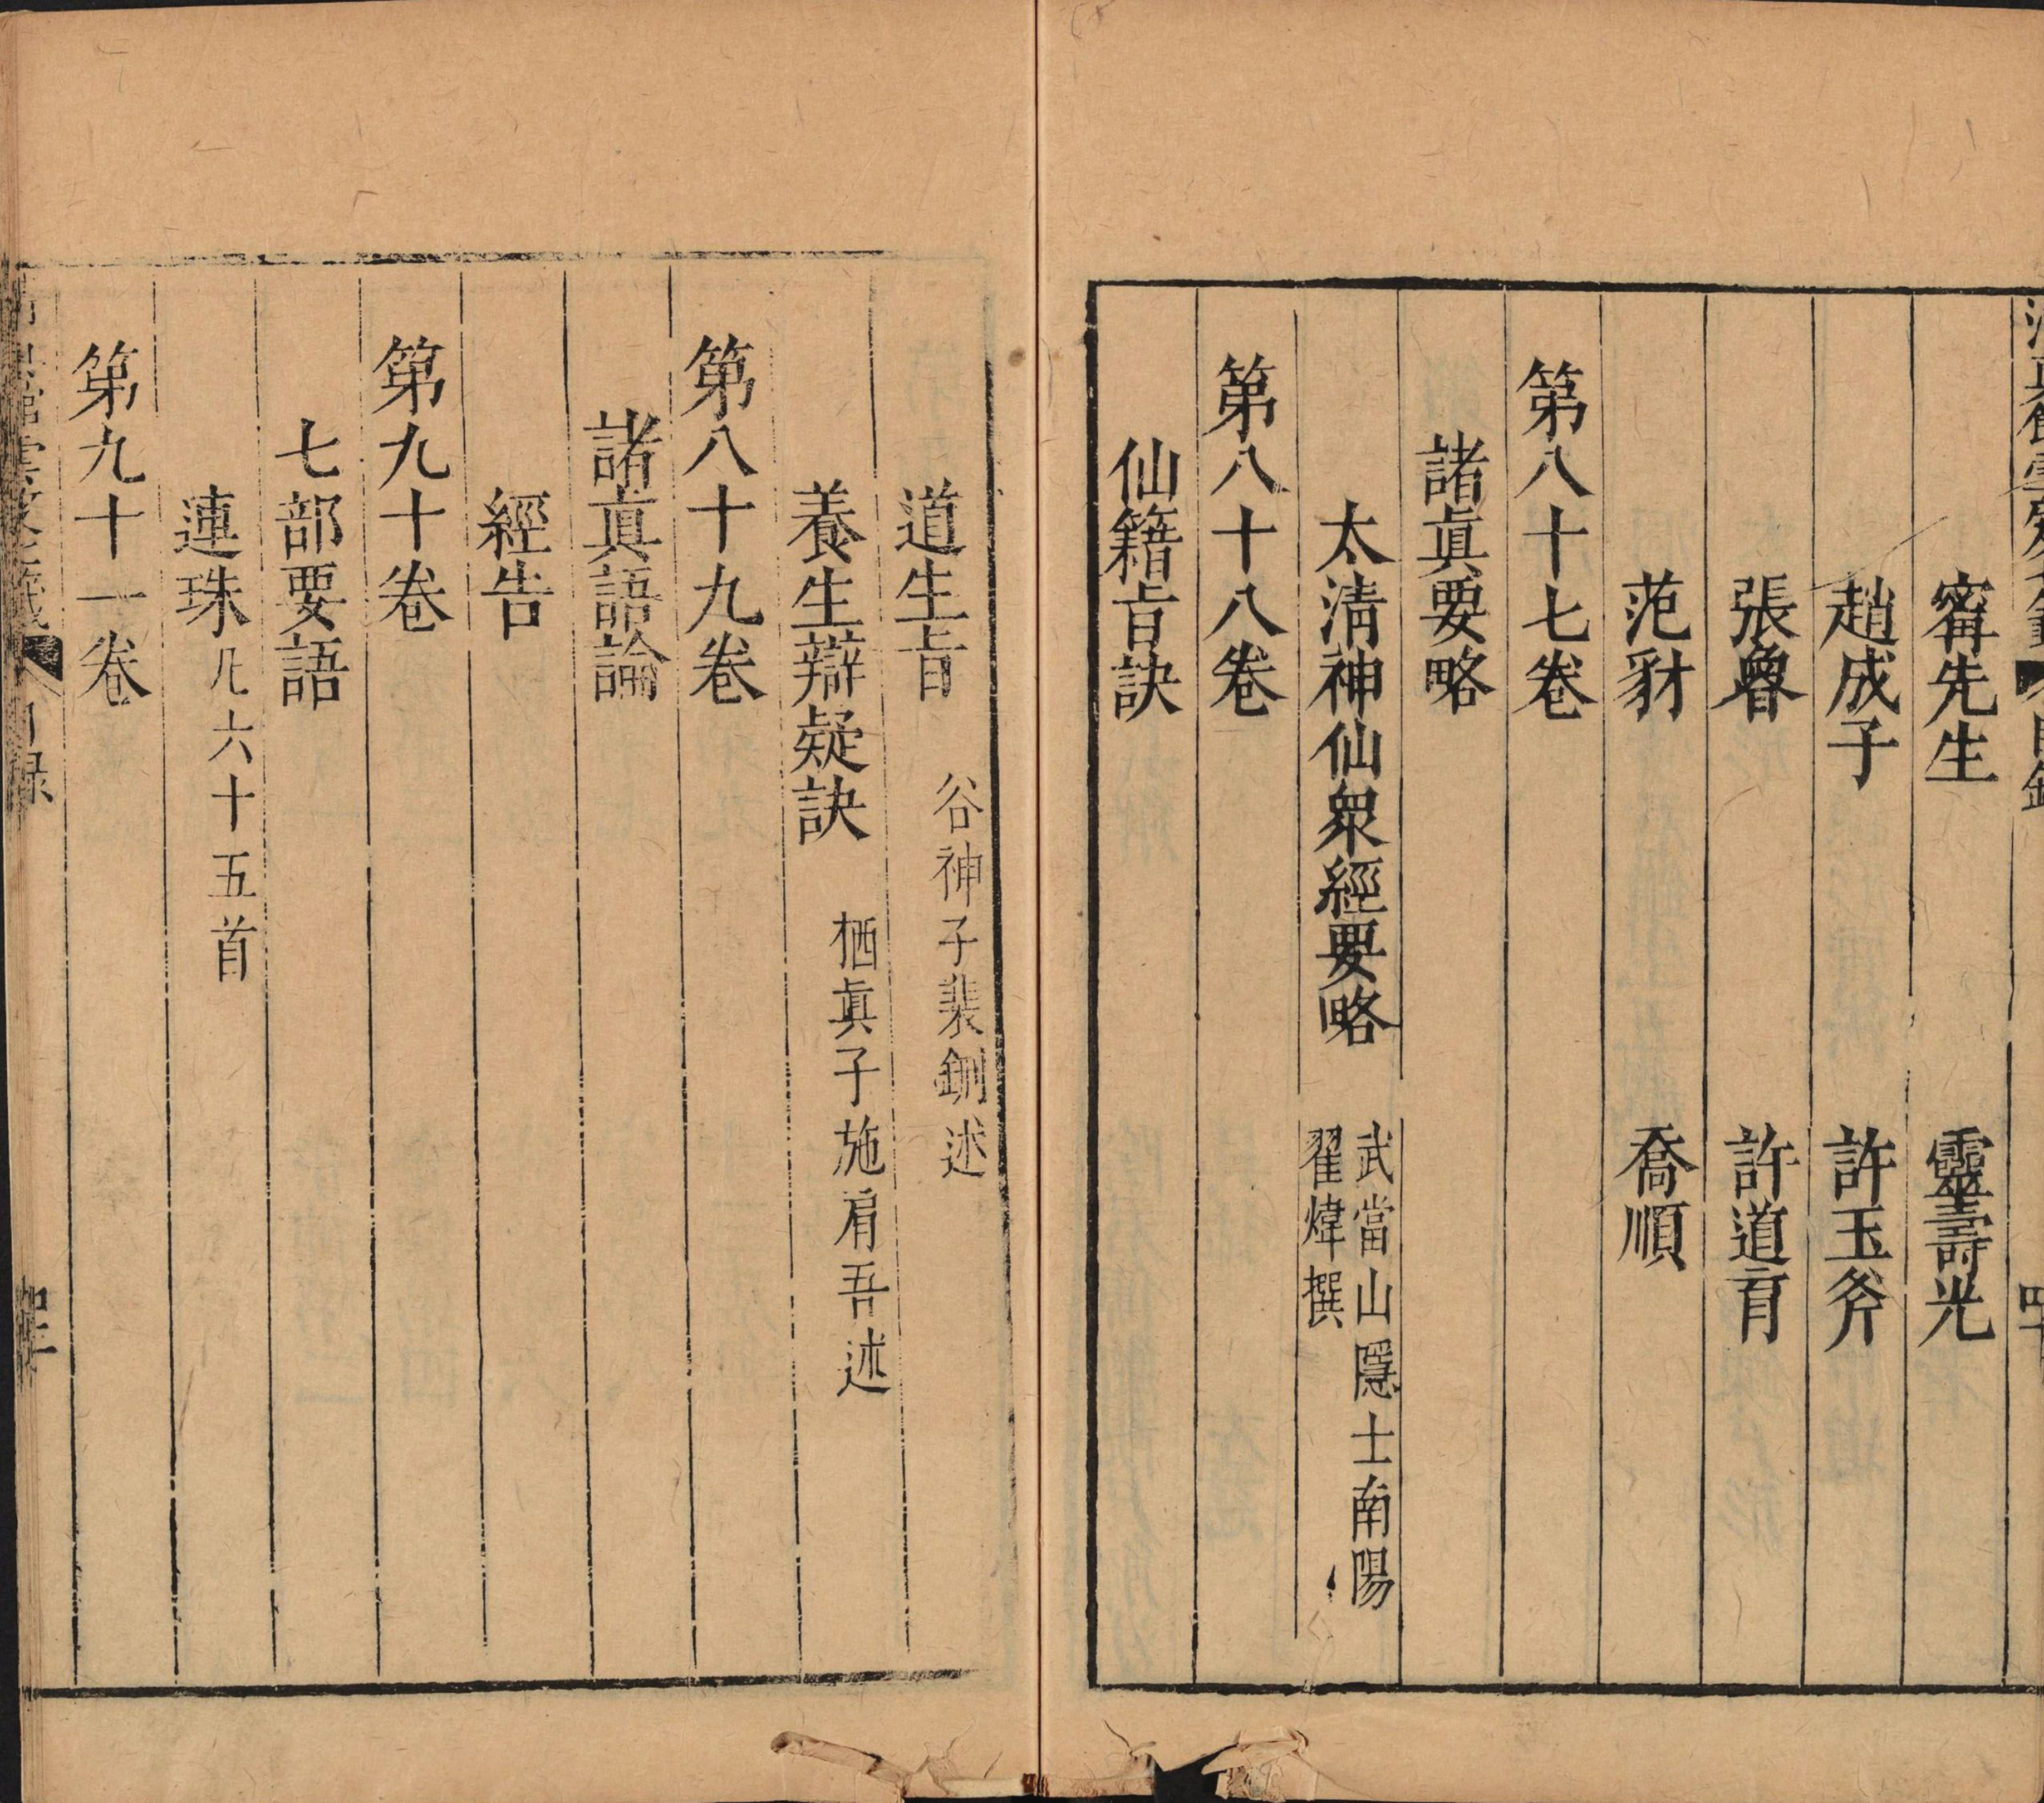 甯先生　靈壽光
趙成子　許玉斧
張魯　許道育
范豺　喬順
第八十七卷
諸眞要略
太淸神仙衆經要略　武當山隱士南陽
翟煒撰
第八十八卷
仙籍旨訣
道生旨　谷神子裴鉶述
養生辯疑訣　栖眞子施肩吾述
第八十九卷
諸眞語論
經告
第九十卷
七部要語
連珠凡六十五首
第九十一卷